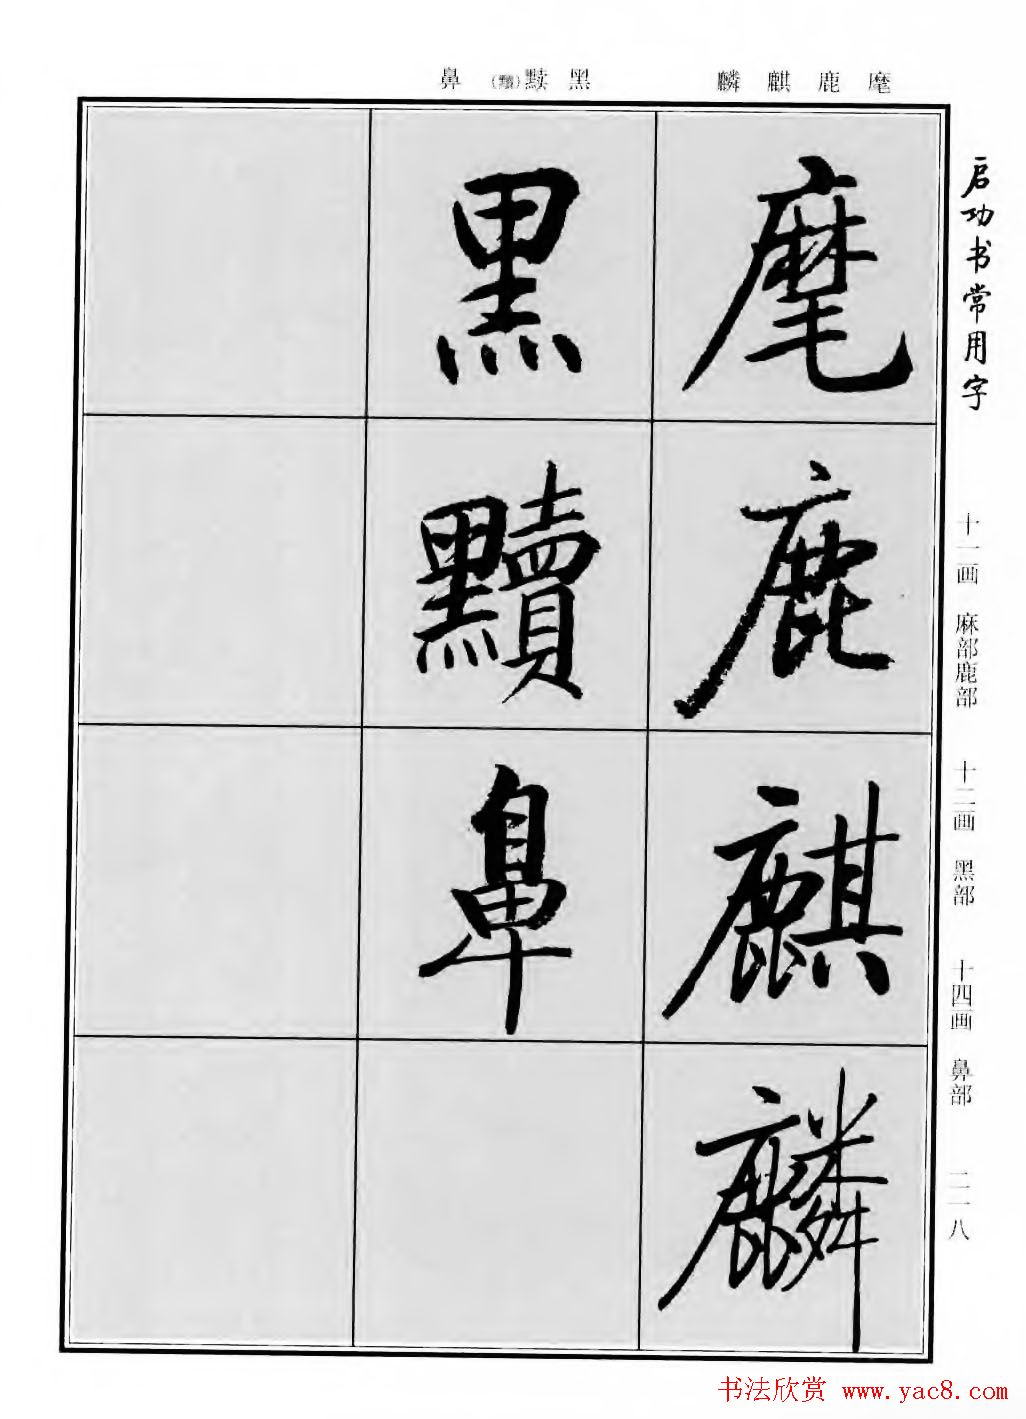 麾鹿麒麟 黑黩（黷）鼻
启功书常用字
十一画 麻部鹿部 十二画 黑部 十四画 鼻部 二一八
麾鹿麒麟
黑黷鼻
书法欣赏 www.yac8.com